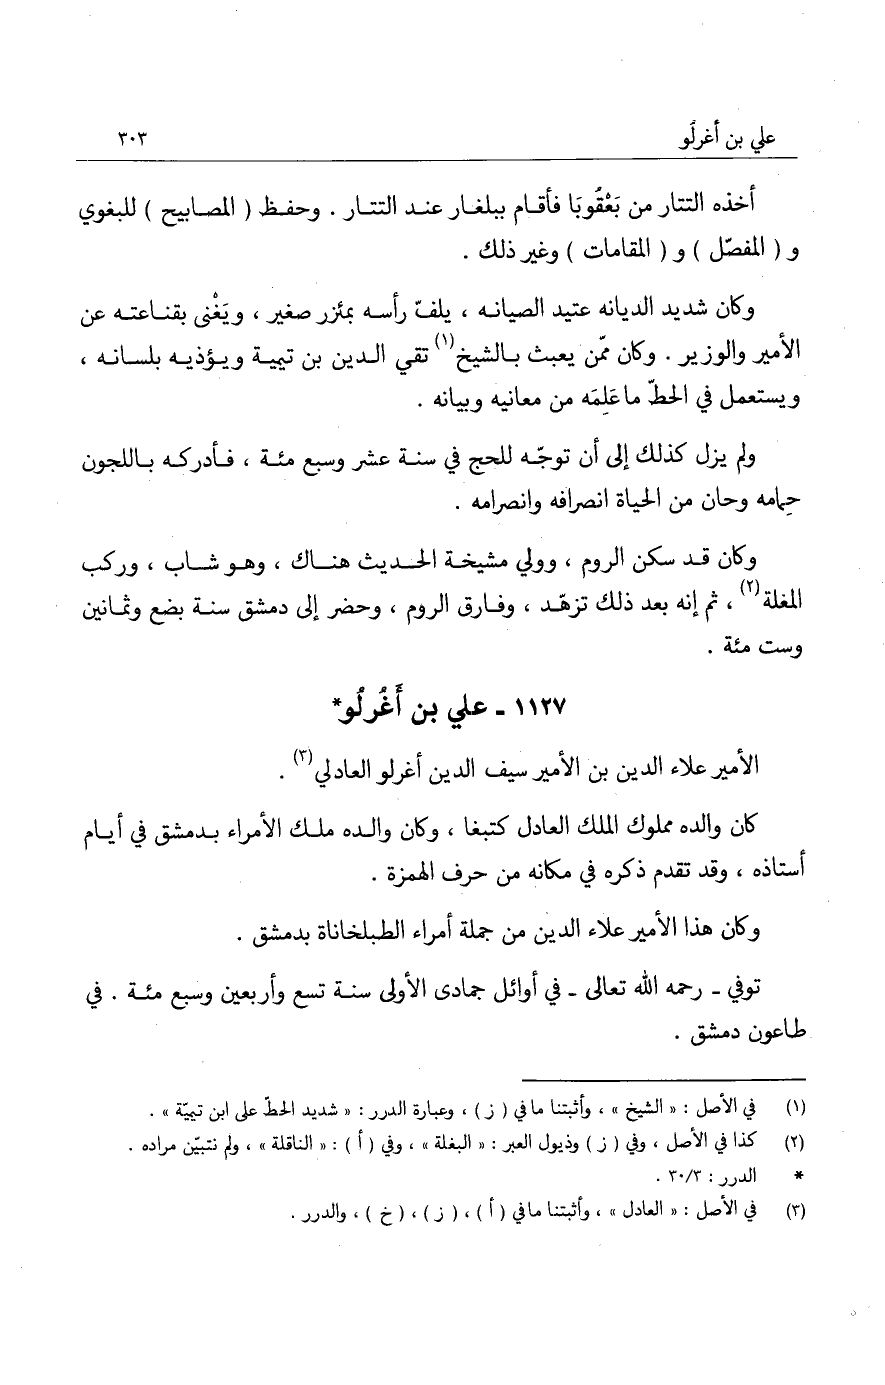 علي بن أغرلُو ٣٠٣
أخذه التتار من بَعْقُوبَا فأقـام ببلغـار عنـد التتـار . وحفـظ ( المصـابيح ) للبغوي
و ( المفصّل ) و ( المقامات ) وغير ذلك .
وكان شديد الديانه عتيد الصيانـه ، يلفّ رأسـه بمئزر صغير ، ويَغْنى بقنـاعتـه عن
الأمير والوزير . وكان ممّن يعبث بـالشيخ(١) تقي الـدين بن تيميـة ويـؤذيـه بلسـانـه ،
ويستعمل في الحطّ ما عَلِمَه من معانيه وبيانه .
ولم يزل كذلك إلى أن توجّـه للحج في سنـة عشر وسبع مئـة ، فـأدركـه بـاللجون
حِمامه وحان من الحياة انصرافه وانصرامه .
وكان قـد سكن الروم ، وولي مشيخـة الحـديث هنـاك ، وهـو شـاب ، وركب
المغلة(٢) ، ثم إنه بعد ذلك تزهّـد ، وفـارق الروم ، وحضر إلى دمشق سنـة بضع وثمـانين
وست مئة .
١١٢٧ ـ علي بن أَغُرلُو*
الأمير علاء الدين بن الأمير سيف الدين أغرلو العادلي(٣) .
كان والده مملوك الملك العادل كتبغا ، وكان والـده ملـك الأمراء بـدمشق في أيـام
أستاذه ، وقد تقدم ذكره في مكانه من حرف الهمزة .
وكان هذا الأمير علاء الدين من جملة أمراء الطبلخاناة بدمشق .
توفي ـ رحمه الله تعالى ـ في أوائل جمادى الأولى سنـة تسع وأربعين وسبع مئـة . في
طاعون دمشق .
(١) في الأصل : « الشيخ » ، وأثبتنا ما في ( ز ) ، وعبارة الدرر : « شديد الحطّ على ابن تيميّة » .
(٢) كذا في الأصل ، وفي ( ز ) وذيول العبر : « البغلة » ، وفي ( أ ) : « الناقلة » ، ولم نتبيّن مراده .
* الدرر : ٣٠/٣ .
(٣) في الأصل : « العادل » ، وأثبتنا ما في ( أ ) ، ( ز ) ، ( خ ) ، والدرر .